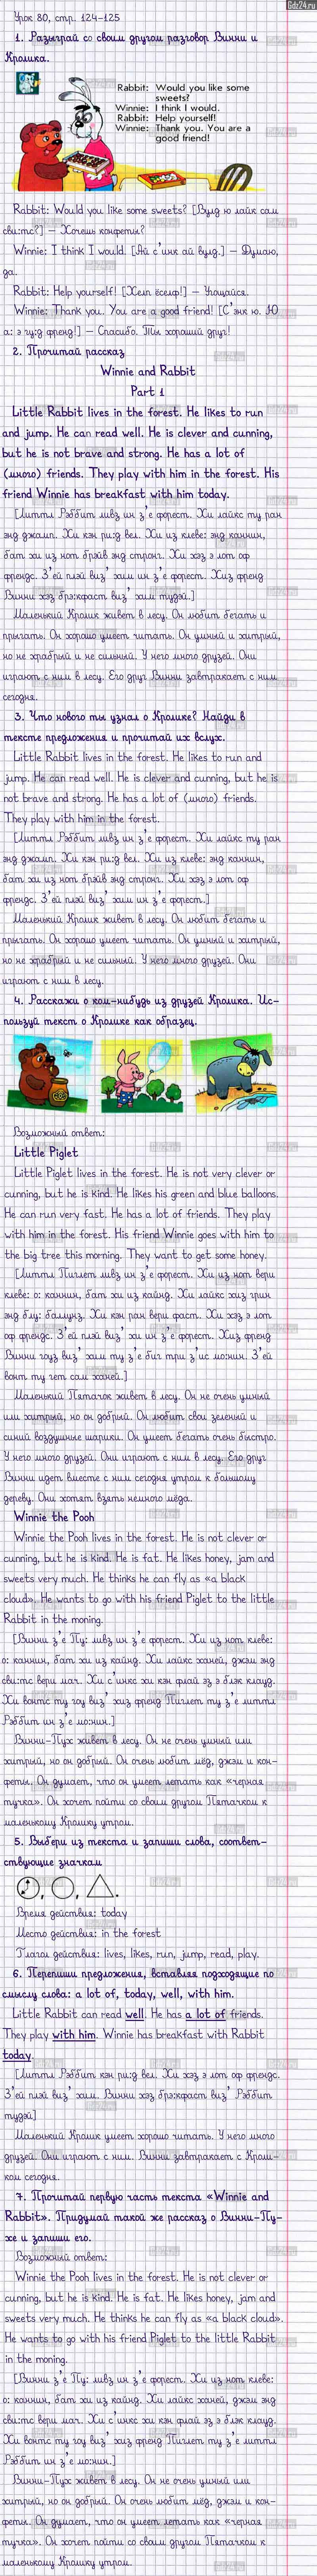 Gdz24.ru
Урок 80, стр. 124-125
1. Разыграй со своим другом разговор Винни и
Кролика.
Rabbit: Would you like some
sweets?
Winnie: I think I would.
Rabbit: Help yourself!
Winnie: Thank you. You are a
good friend!
Rabbit: Would you like some sweets? [Вулд ю лайк сам
сви:тс?] – Хочешь конфеты?
Winnie: I think I would. [Ай с'инк ай вулд.] – Думаю,
да.
Rabbit: Help yourself! [Хелп ёселф!] – Угощайся.
Winnie: Thank you. You are a good friend! [С'энк ю. Ю
а: э гу:д френд!] – Спасибо. Ты хороший друг!
2. Прочитай рассказ
Winnie and Rabbit
Part 1
Little Rabbit lives in the forest. He likes to run
and jump. He can read well. He is clever and cunning,
but he is not brave and strong. He has a lot of
(много) friends. They play with him in the forest. His
friend Winnie has breakfast with him today.
[Литтл Рэббит ливз ин з'е форест. Хи лайкс ту ран
энд джамп. Хи кэн ри:д вел. Хи из клеве: энд каннин,
бат хи из нот брэйв энд стронг. Хи хэз э лот оф
френдс. З'ей плэй виз' хим ин з'е форест. Хиз френд
Винни хэз брэ:кфаст виз' хим тудэй.]
Маленький Кролик живет в лесу. Он любит бегать и
прыгать. Он хорошо умеет читать. Он умный и хитрый,
но не храбрый и не сильный. У него много друзей. Они
играют с ним в лесу. Его друг Винни завтракает с ним
сегодня.
3. Что нового ты узнал о Кролике? Найди в
тексте предложения и прочитай их вслух.
Little Rabbit lives in the forest. He likes to run and
jump. He can read well. He is clever and cunning, but he is
not brave and strong. He has a lot of (много) friends.
They play with him in the forest.
[Литтл Рэббит ливз ин з'е форест. Хи лайкс ту ран
энд джамп. Хи кэн ри:д вел. Хи из клеве: энд каннин,
бат хи из нот брэйв энд стронг. Хи хэз э лот оф
френдс. З'ей плэй виз' хим ин з'е форест.]
Маленький Кролик живет в лесу. Он любит бегать и
прыгать. Он хорошо умеет читать. Он умный и хитрый,
но не храбрый и не сильный. У него много друзей. Они
играют с ним в лесу.
4. Расскажи о ком-нибудь из друзей Кролика. Ис-
пользуй текст о Кролике как образец.
Возможный ответ:
Little Piglet
Little Piglet lives in the forest. He is not very clever or
cunning, but he is kind. He likes his green and blue balloons.
He can run very fast. He has a lot of friends. They play
with him in the forest. His friend Winnie goes with him to
the big tree this morning. They want to get some honey.
[Литтл Пиглет ливз ин з'е форест. Хи из нот вери
клеве: о: каннин, бат хи из кайнд. Хи лайкс хиз грин
энд блу: балунз. Хи кэн ран вери фаст. Хи хэз э лот
оф френдс. З'ей плэй виз' хи ин з'е форест. Хиз френд
Винни гоуз виз' хим ту з'е биг три з'ис мо:нин. З'ей
вонт ту гет сам ханей.]
Маленький Пятачок живет в лесу. Он не очень умный
или хитрый, но он добрый. Он любит свои зеленый и
синий воздушные шарики. Он умеет бегать очень быстро.
У него много друзей. Они играют с ним в лесу. Его друг
Винни идет вместе с ним сегодня утром к большому
дереву. Они хотят взять немного мёда.
Winnie the Pooh
Winnie the Pooh lives in the forest. He is not clever or
cunning, but he is kind. He is fat. He likes honey, jam and
sweets very much. He thinks he can fly as «a black
cloud». He wants to go with his friend Piglet to the little
Rabbit in the moning.
[Винни з'е Пу: ливз ин з'е форест. Хи из нот клеве:
о: каннин, бат хи из кайнд. Хи лайкс ханей, джэм энд
сви:тс вери мач. Хи с'инкс хи кэн флай эз э блэк клауд.
Хи вонтс ту гоу виз' хиз френд Пиглет ту з'е литтл
Рэббит ин з'е мо:нин.]
Винни-Пух живет в лесу. Он не очень умный или
хитрый, но он добрый. Он очень любит мёд, джем и кон-
феты. Он думает, что он умеет летать как «черная
тучка». Он хочет пойти со своим другом Пятачком к
маленькому Кролику утром.
5. Выбери из текста и запиши слова, соответ-
ствующие значкам
Время действия: today
Место действия: in the forest
Глагол действия: lives, likes, run, jump, read, play.
6. Перепиши предложения, вставляя подходящие по
смыслу слова: a lot of, today, well, with him.
Little Rabbit can read well. He has a lot of friends.
They play with him. Winnie has breakfast with Rabbit
today.
[Литтл Рэббит кэн ри:д вел. Хи хэз э лот оф френдс.
З'ей плэй виз' хим. Винни хэз брэ:кфаст виз' Рэббит
тудэй]
Маленький Кролик умеет хорошо читать. У него много
друзей. Они играют с ним. Винни завтракает с Кроли-
ком сегодня.
7. Прочитай первую часть текста «Winnie and
Rabbit». Придумай такой же рассказ о Винни-Пу-
хе и запиши его.
Возможный ответ:
Winnie the Pooh lives in the forest. He is not clever or
cunning, but he is kind. He is fat. He likes honey, jam and
sweets very much. He thinks he can fly as «a black cloud».
He wants to go with his friend Piglet to the little Rabbit
in the moning.
[Винни з'е Пу: ливз ин з'е форест. Хи из нот клеве:
о: каннин, бат хи из кайнд. Хи лайкс ханей, джэм энд
сви:тс вери мач. Хи с'инкс хи кэн флай эз э блэк клауд.
Хи вонтс ту гоу виз' хиз френд Пиглет ту з'е литтл
Рэббит ин з'е мо:нин.]
Винни-Пух живет в лесу. Он не очень умный или
хитрый, но он добрый. Он очень любит мёд, джем и кон-
феты. Он думает, что он умеет летать как «черная
тучка». Он хочет пойти со своим другом Пятачком к
маленькому Кролику утром.